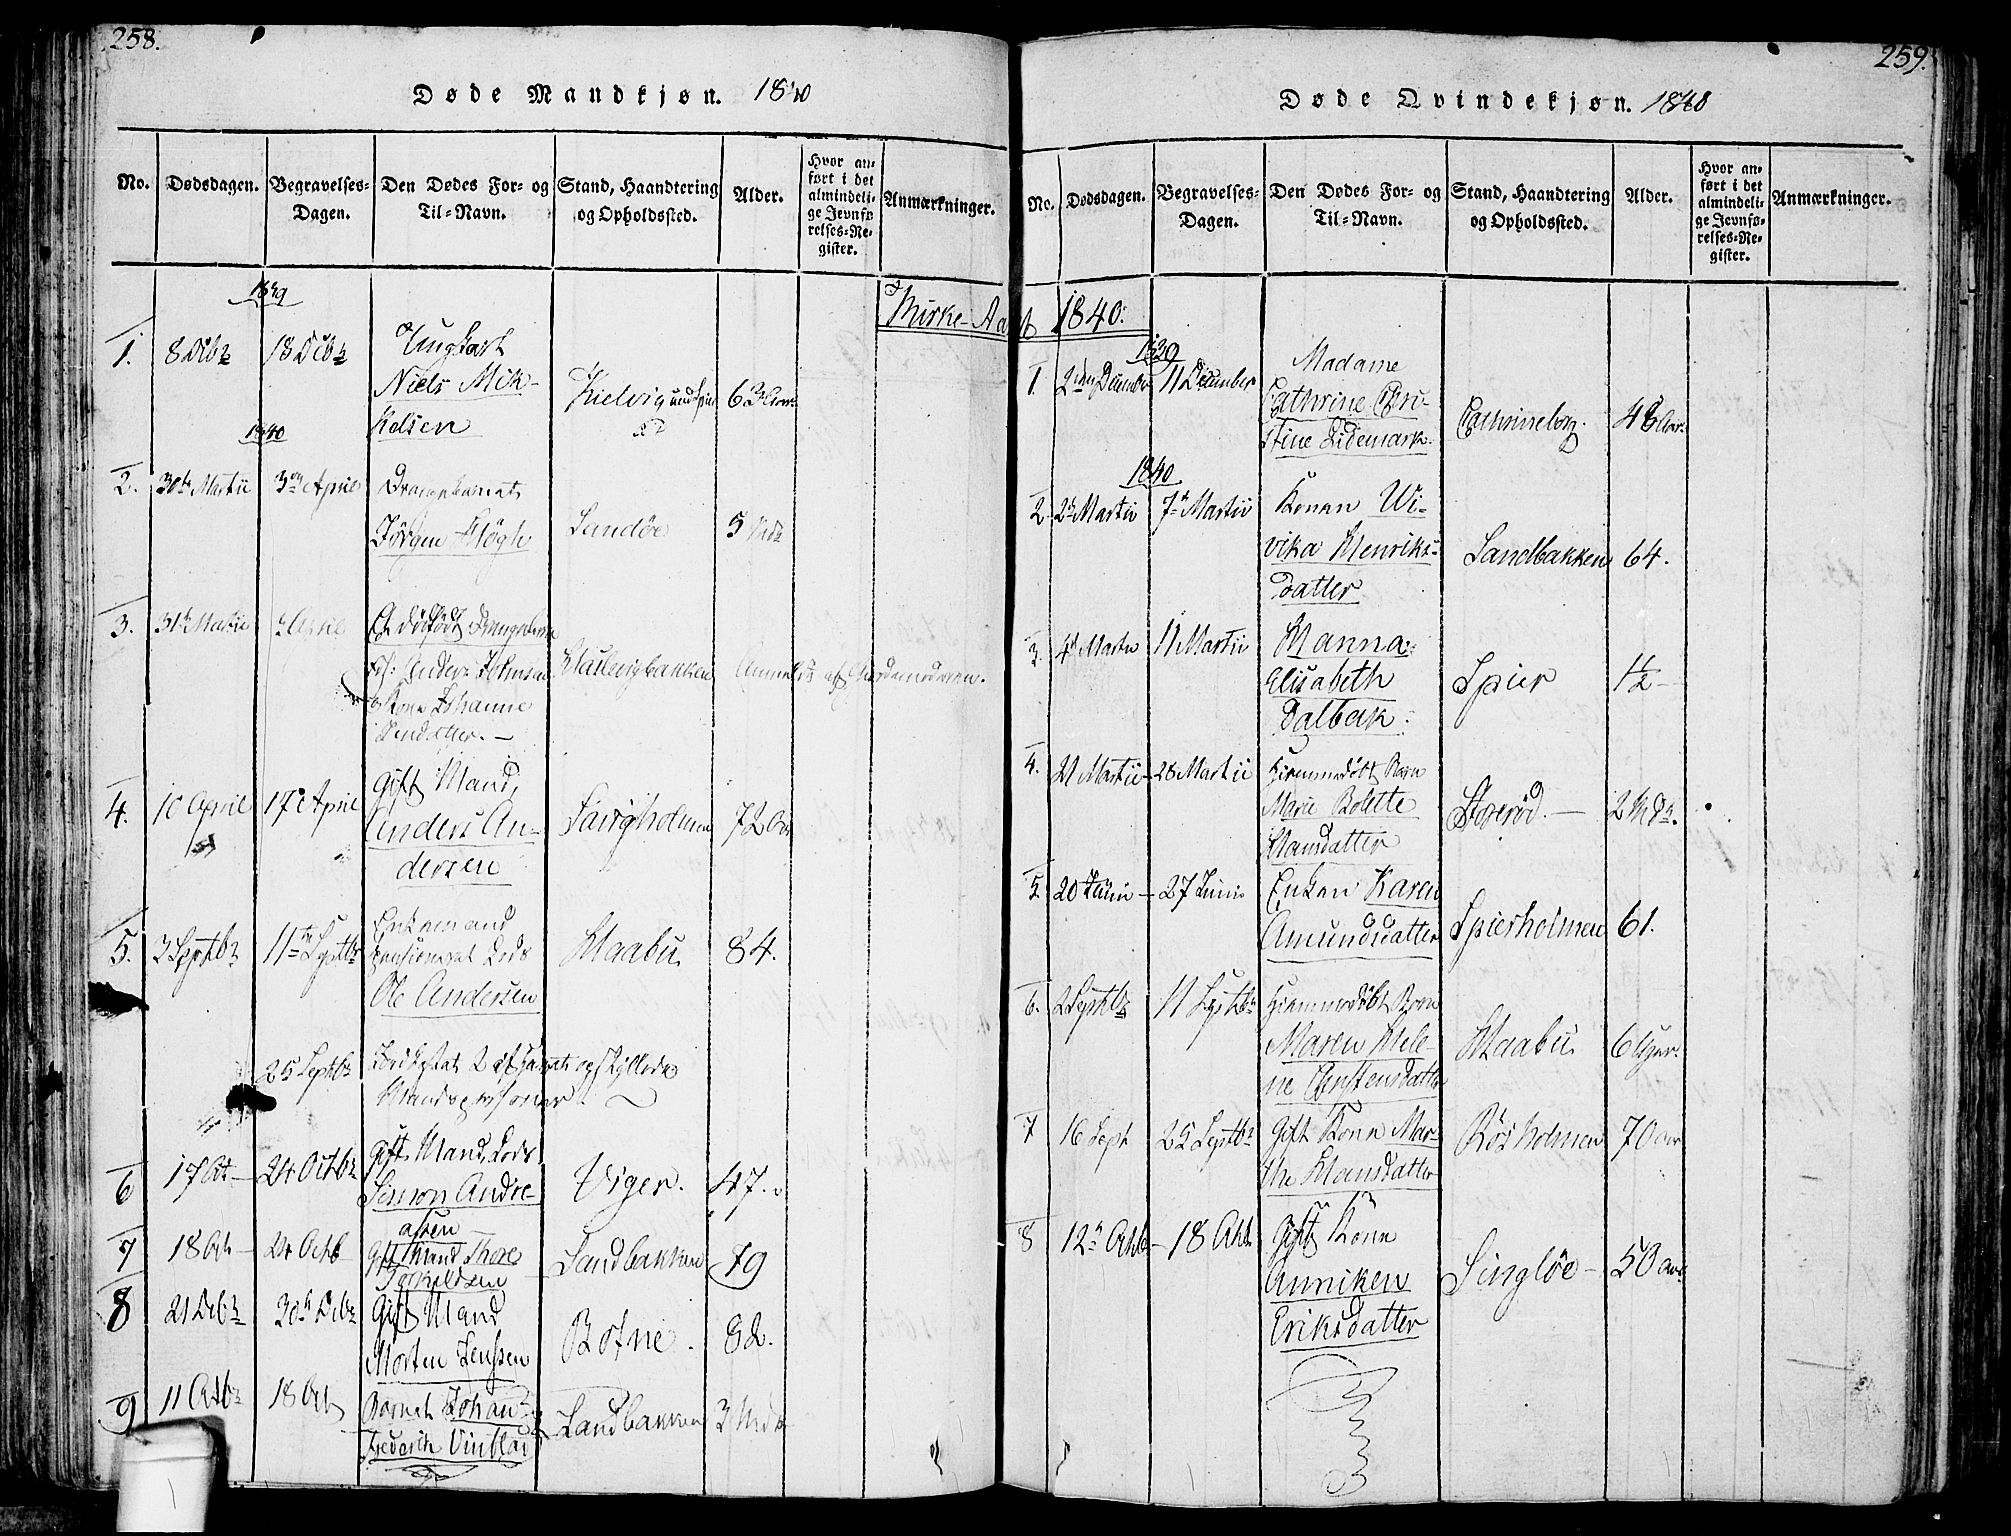 258.
Døde Mandkjøn. 1840
No. Dødsdagen. Begravelses-Dagen. Den Dødes For- og Til-Navn. Stand, Haandtering og Opholdssted. Alder. Hvor anført i det almindelige Jevnførelses-Register. Anmærkninger.
Kirke-Aaret 1840.
1839
1. 8 Decbr 18 Decbr Ungkarl
Niels Mik-
kelsen
63 Aar
1840
2. 30te Martii 3die April
Jörgen Flögh Sandöe 5 Mdr
3. 31te Martii
Anders Johnsen
Kone Johanne
4. 10 April 17de April Gift Mand,
Anders An-
dersen
72 Aar
5. 3 Septbr 11te Septbr Enkemand
Ole Andersen
Maabu 84.
25 Septbr
6 17 Oct 24 Octbr Gift Mand
Simon Andre-
asen
Viger. 47.
7 18 Oct 24 Octb Gift Mand Thore
Torkildsen
Sandbakken 79
8 21 Decbr 30te Decbr Gift Mand
Morten Jenssen
Botne. 82.
9 11 Octbr 18 Oct Barnet Johan
Frederik Vinblad
Sandbakken 3 Mdr
259.
Døde Qvindekjøn. 1840
No. Dødsdagen. Begravelses-Dagen. Den Dødes For- og Til-Navn. Stand, Haandtering og Opholdssted. Alder. Hvor anført i det almindelige Jevnførelses-Register. Anmærkninger.
1839
1. 2den December 11 December Madame
Cathrine Chri-
stine Lidemark.
Cathrineborg. 48 Aar
1840
2. 2den Martii 7de Martii Konen Wi-
vika Henriks-
datter
Sandbakken 64.
3. 4de Martii 11 Martii Hanna
Elisabeth
Dalbak.
Spier 1½
4. 21 Martii 28 Martii Hjemmedöbt Barn
Marie Bolette
Hansdatter
Storeröd. 2 Mdr.
5. 20 Junii 27 Junii Enken Karen
Amundsdatter
Spierholmen 61.
6. 2 Septbr 11 Septbr Hjemmedöbt Barn
Maren Hele-
ne Christensdatter
Maabu 6 Uger
7 16 Sept 25 Septbr Gift Kone Mar-
the Hansdatter
Rösholmen 70 Aar
8 12te Octb 18 Oct Gift Kone
Anniken
Eriksdatter
Singlöe 50 Aar